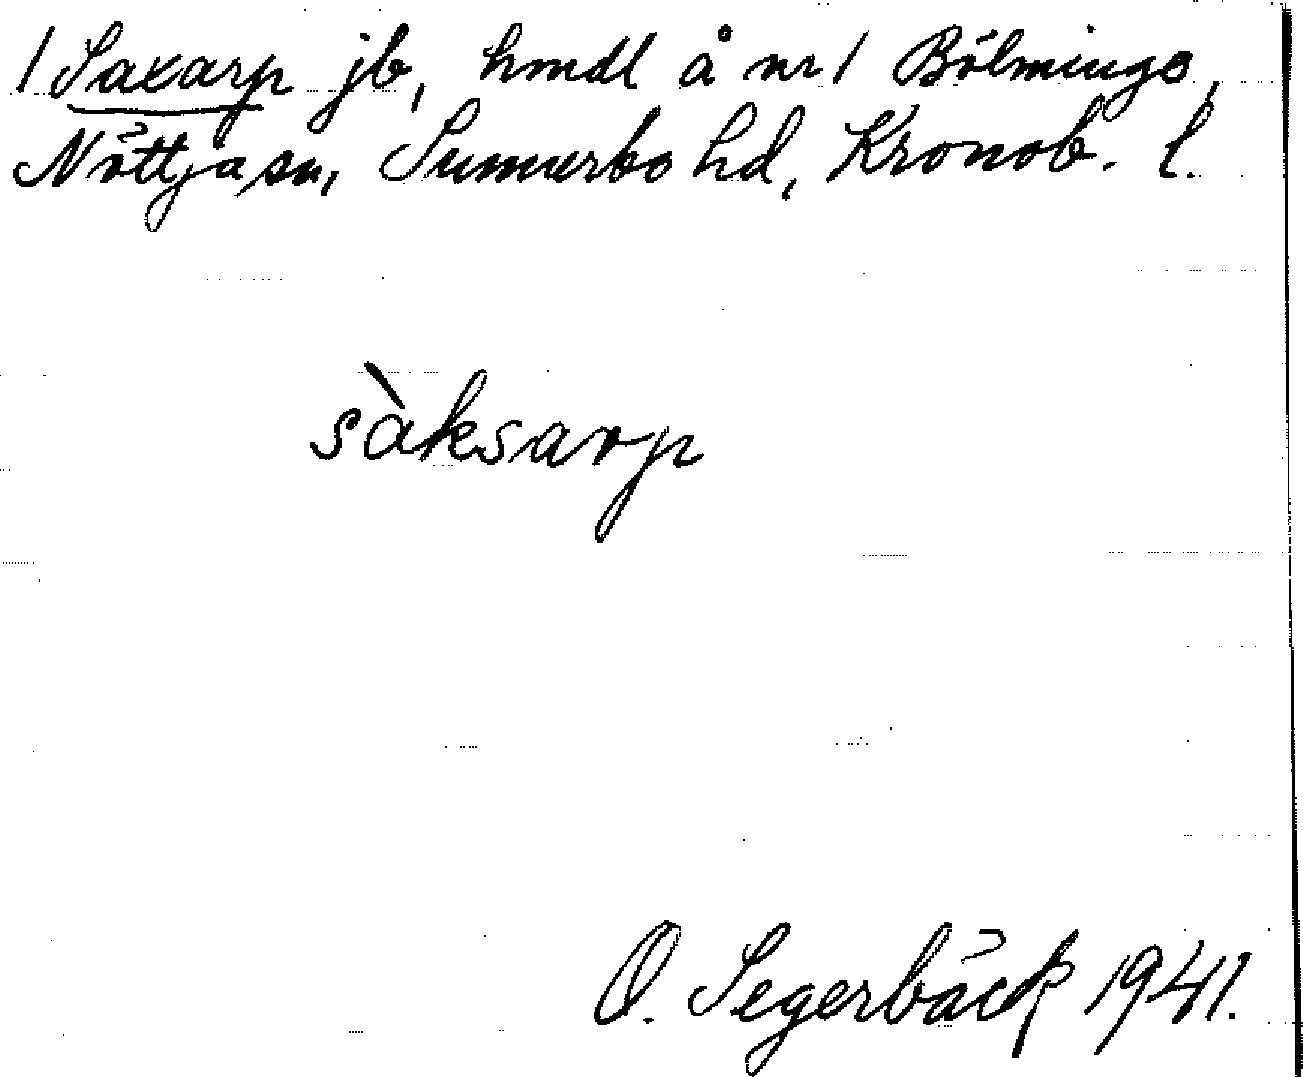 / Saxarp jb, hmdl å nr 1 Bölminge,
Nöttja sn, Sunnerbo hd, Kronob. l.
sàksarp
O. Segerbäck 1941.